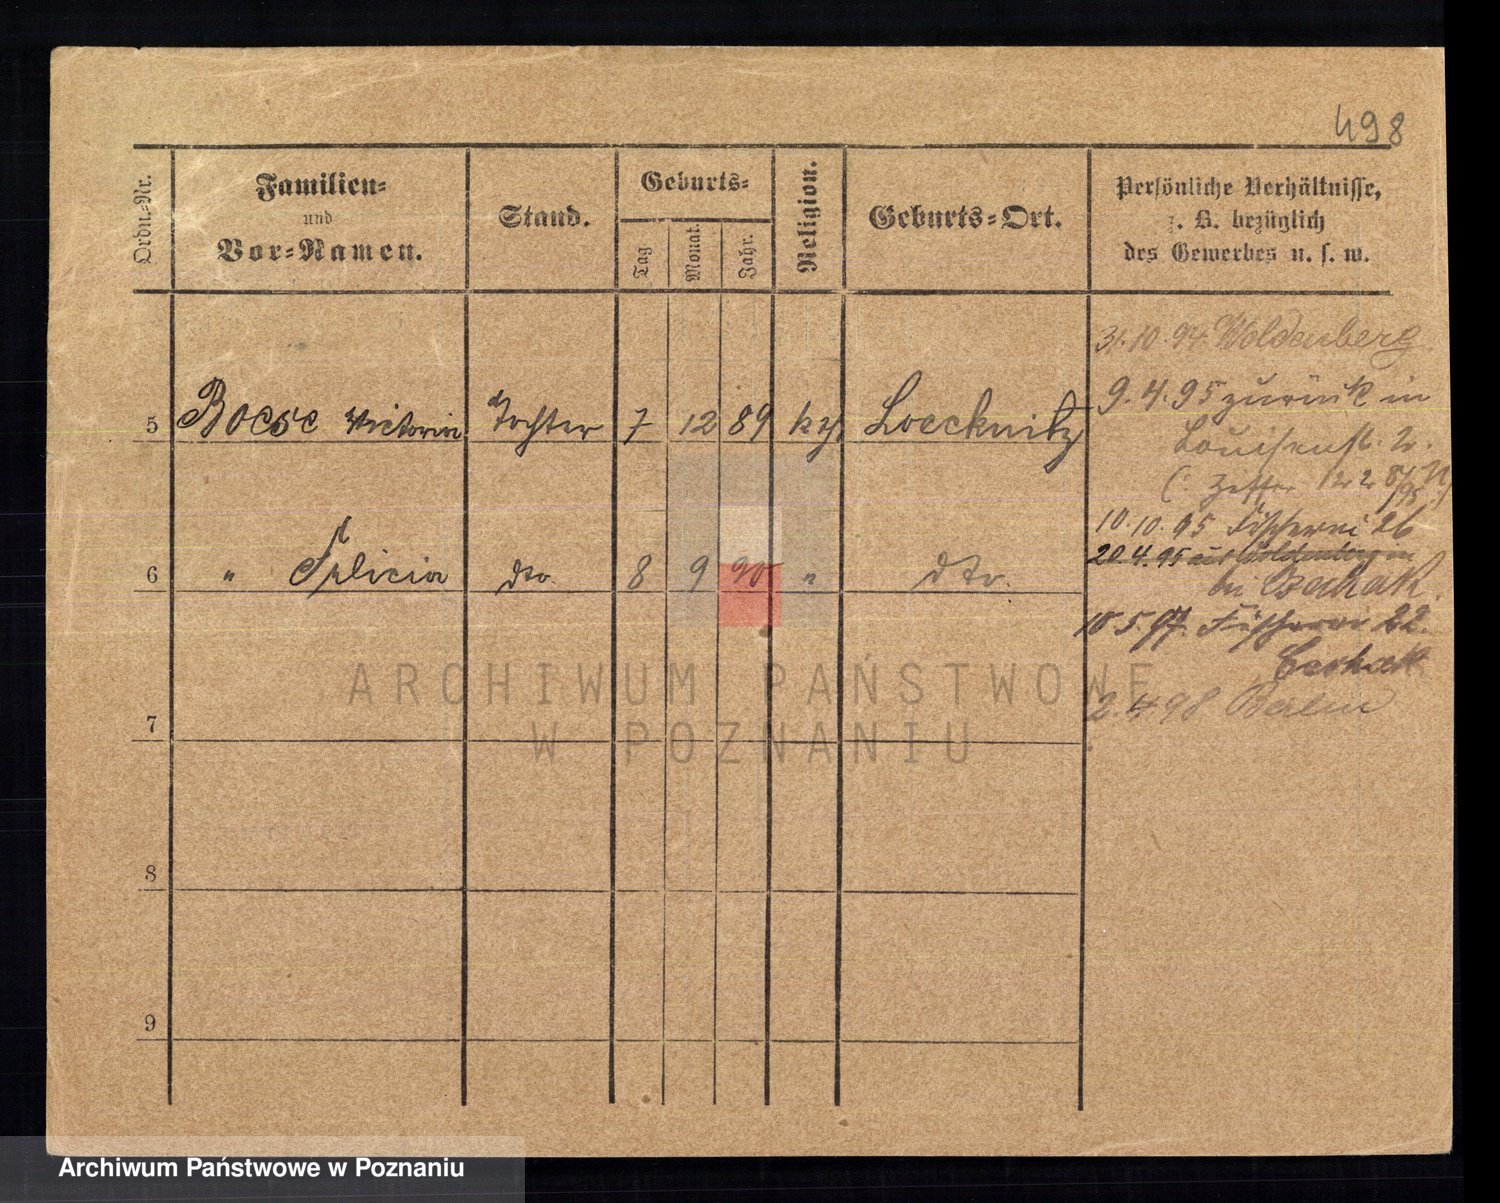 498
Ordn.-Nr.
Familien-
und
Vor-Namen.
Stand.
Geburts-
Tag
Monat.
Jahr.
Religion.
Geburts-Ort.
Persönliche Verhältnisse,
z. B. bezüglich
des Gewerbes u. s. w.
31.10.94 Woldenberg
5 Boese Victoria Tochter 7 12 89 kth Loecknitz
9.4.95 zurück in
Louisenst. 2.
10.10.95 Fischerei 26
20.4.95 aus Woldenberg in
6 " Felicia dto 8 9 90 " dto.
bei
10.5.97. Fischerei 22.
2.4.98 Berlin
7
8
9
ARCHIWUM PAŃSTWOWE
W POZNANIU
Archiwum Państwowe w Poznaniu